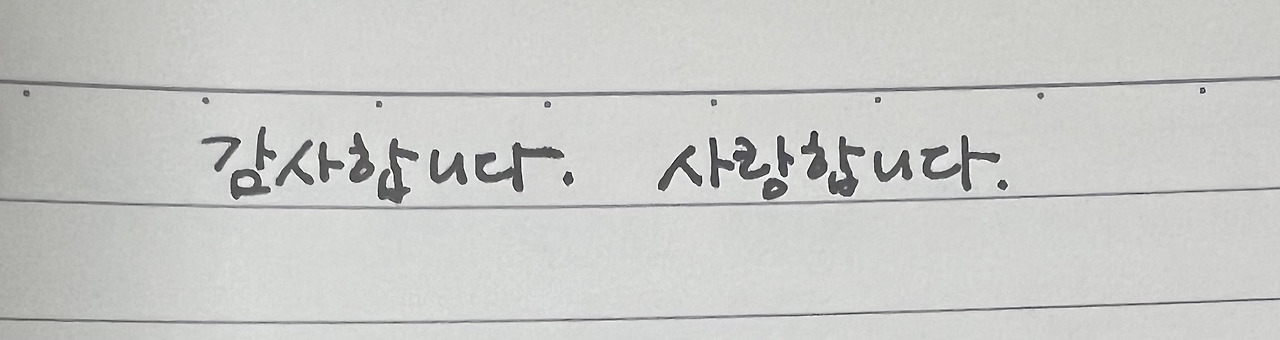 감사합니다. 사랑합니다.